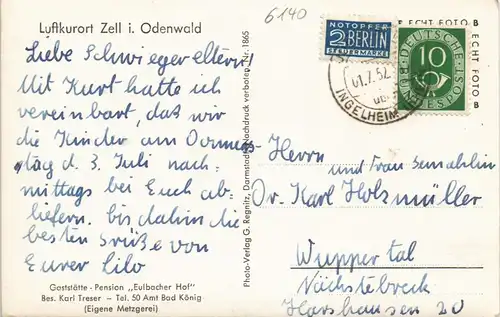 Luftkurort Zell i. Odenwald
6140
Liebe Schwiegereltern!
Mit Kurt hatte ich
vereinbart, daß wir
die Kinder am Donners-
tag d. 3. Juli nach-
mittags bei Euch ab-
liefern. bis dahin die
besten Grüße von
Eurer Lilo
Gaststätte - Pension „Eulbacher Hof"
Bes. Karl Treser - Tel. 50 Amt Bad König
(Eigene Metzgerei)
Photo-Verlag G. Regnitz, Darmstadt Nachdruck verboten Nr. 1865
NOTOPFER
2 BERLIN
STEUERMARKE
DEUTSCHE
BUNDESPOST
10
B ECHT FOTO B
ECHT FOTO B
01.7.52
INGELHEIM
Herrn
und Frau Gemahlin
Dr. Karl Holzmüller
Wuppertal
Nächstebreck
Harhausen 20